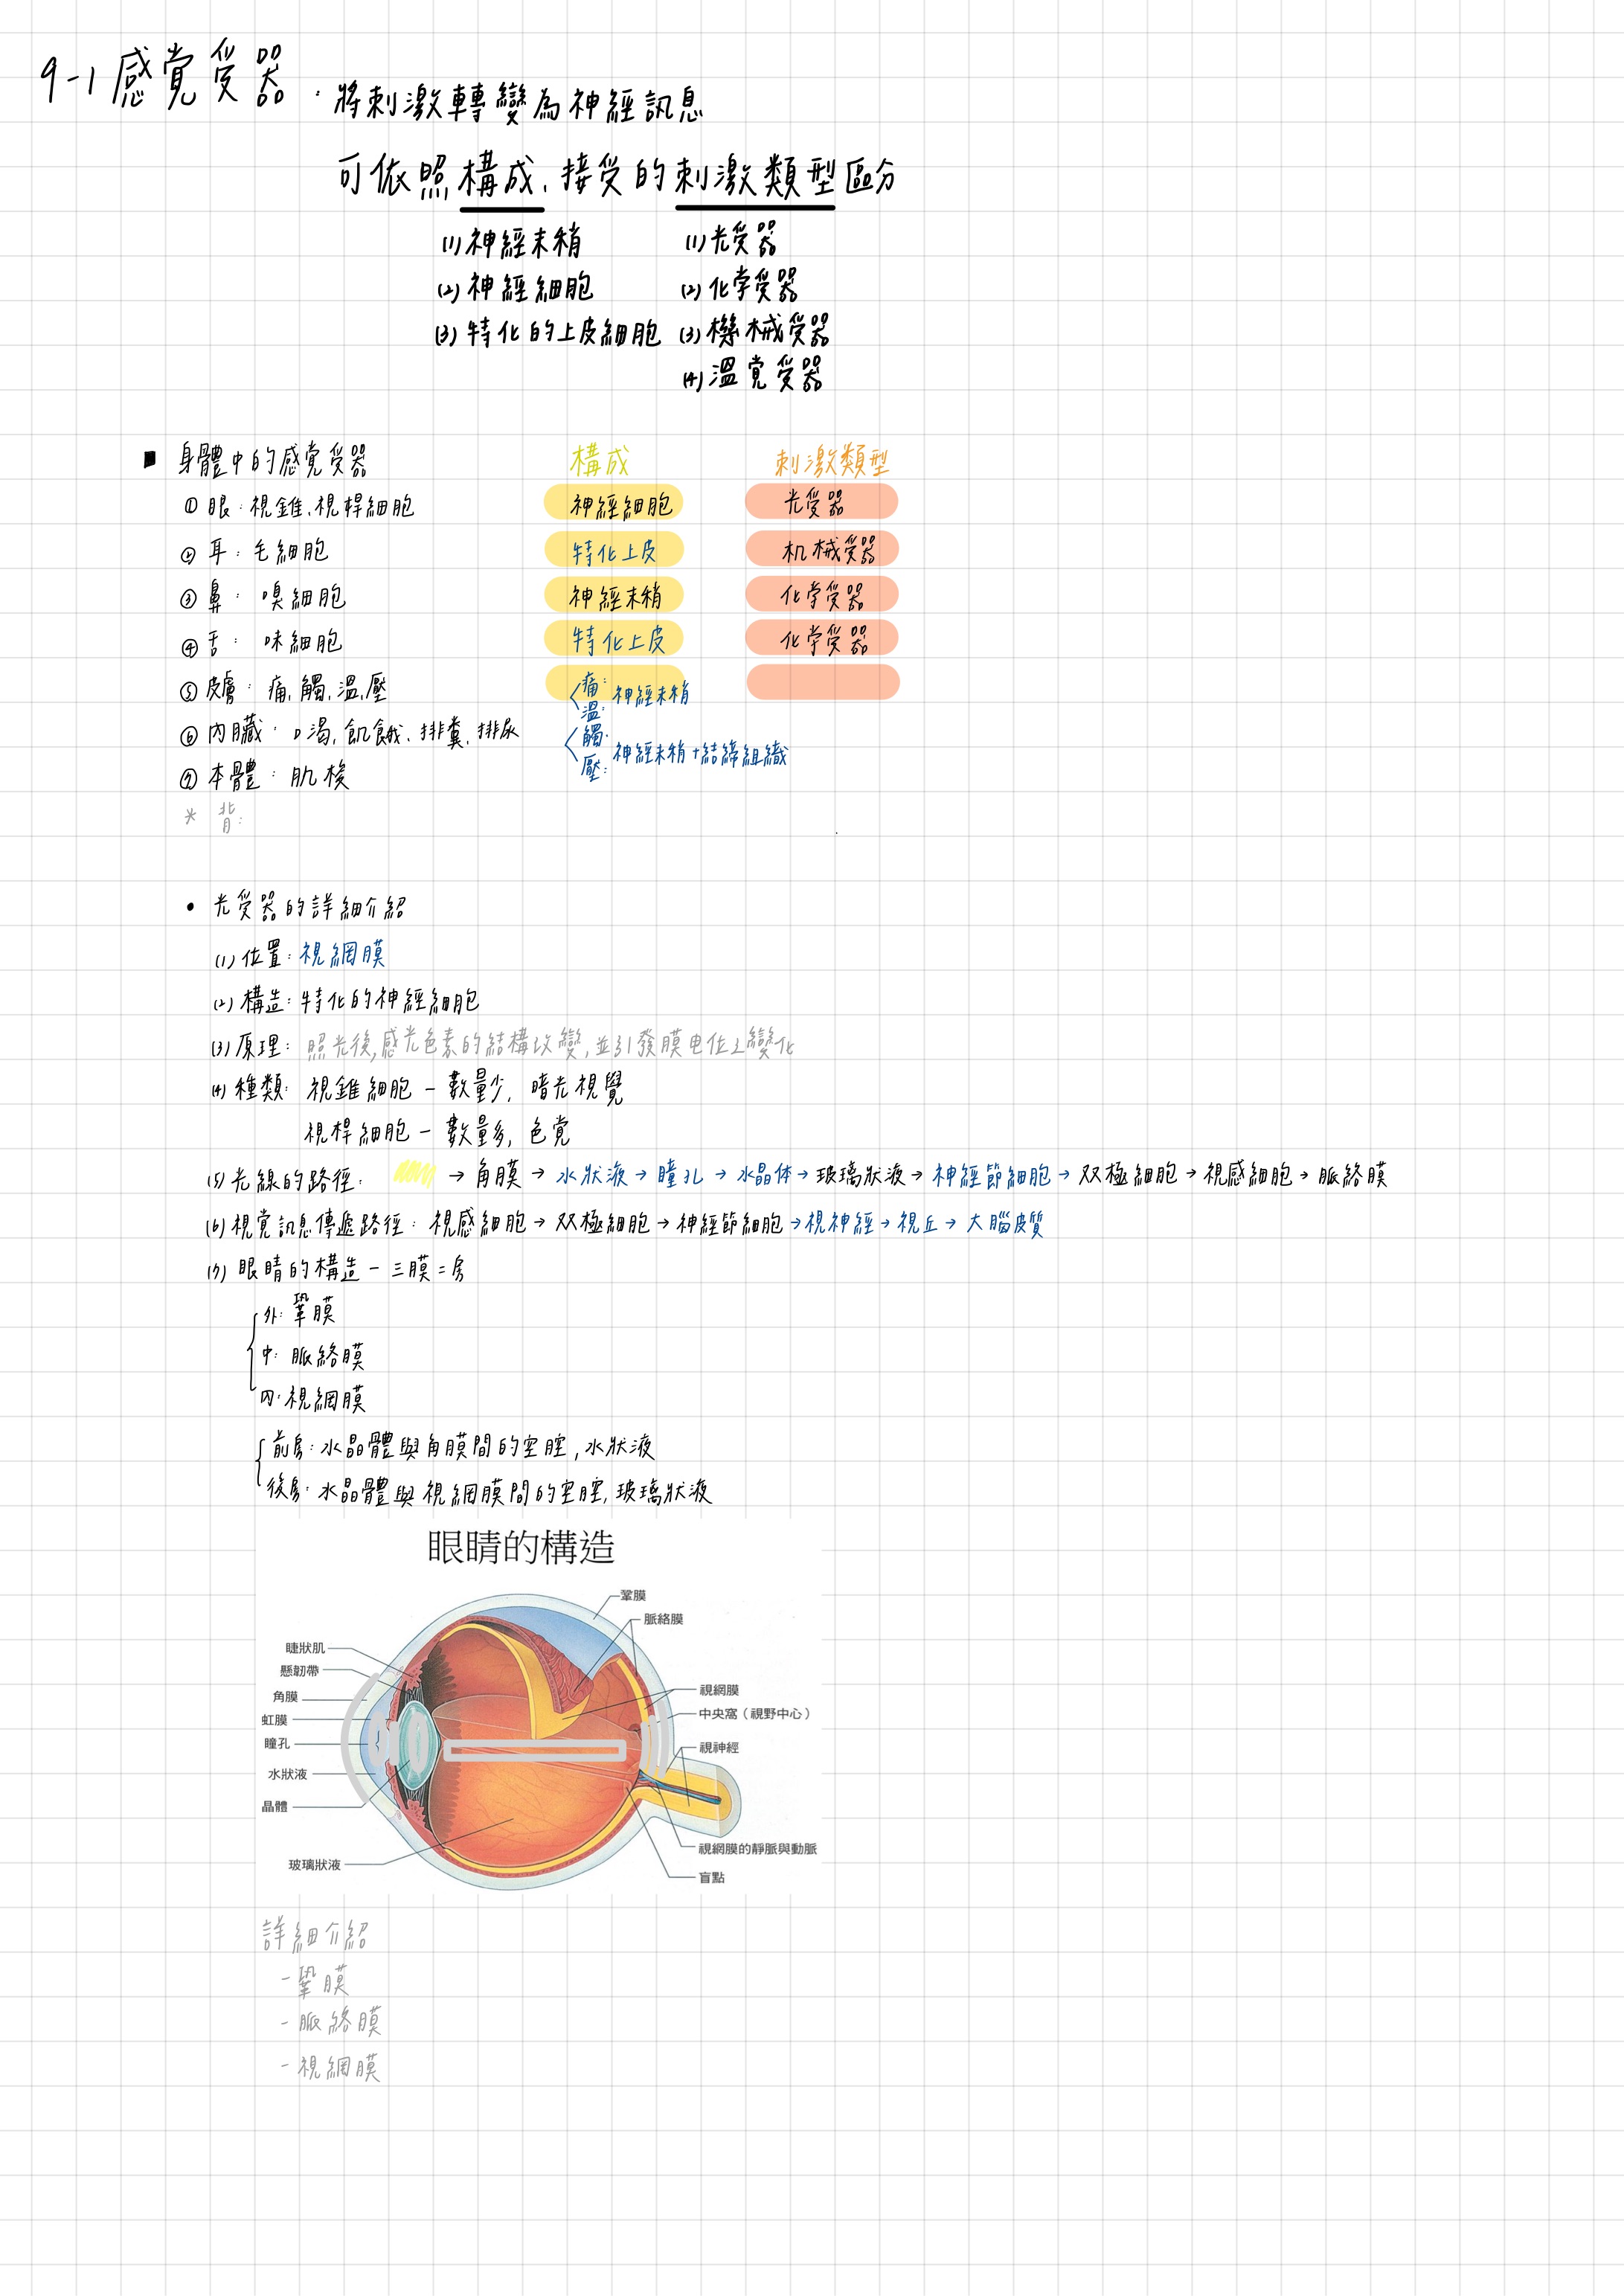 9-1 感覚受器：將刺激轉變為神經訊息
可依照構成、接受的刺激類型區分
(1)神經末稍 (1)光受器
(2)神經細胞 (2)化学受器
(3)特化的上皮細胞 (3)機械受器
(4)溫覚受器
■ 身體中的感覚受器 構成 刺激類型
① 眼：視錐、視桿細胞 神經細胞 光受器
② 耳：毛細胞 特化上皮 机械受器
③ 鼻：嗅細胞 神經末稍 化学受器
④ 舌：味細胞 特化上皮 化学受器
⑤ 皮膚：痛、觸、溫、壓 痛：溫：神經末稍
⑥ 內臟：口渴、飢餓、排糞、排尿 觸：壓：神經末稍+結締組織
⑦ 本體：肌梭
* 背：
• 光受器的詳細介紹
(1)位置：視網膜
(2)構造：特化的神經細胞
(3)原理：照光後,感光色素的結構改變,並引發膜电位之變化
(4)種類：視錐細胞－數量少，暗光視覺
視桿細胞－數量多，色覚
(5)光線的路徑：→角膜→水狀液→瞳孔→水晶体→玻璃狀液→神經節細胞→双極細胞→視感細胞→脈絡膜
(6)視覚訊息傳遞路徑：視感細胞→双極細胞→神經節細胞→視神經→視丘→大腦皮質
(7)眼睛的構造－三膜二房
外：鞏膜
中：脈絡膜
內：視網膜
前房：水晶體與角膜間的空腔,水狀液
後房：水晶體與視網膜間的空腔,玻璃狀液
眼睛的構造
鞏膜
脈絡膜
睫狀肌
懸韌帶
角膜
虹膜
瞳孔
水狀液
晶體
玻璃狀液
視網膜
中央窩（視野中心）
視神經
視網膜的靜脈與動脈
盲點
詳細介紹
-鞏膜
-脈絡膜
-視網膜